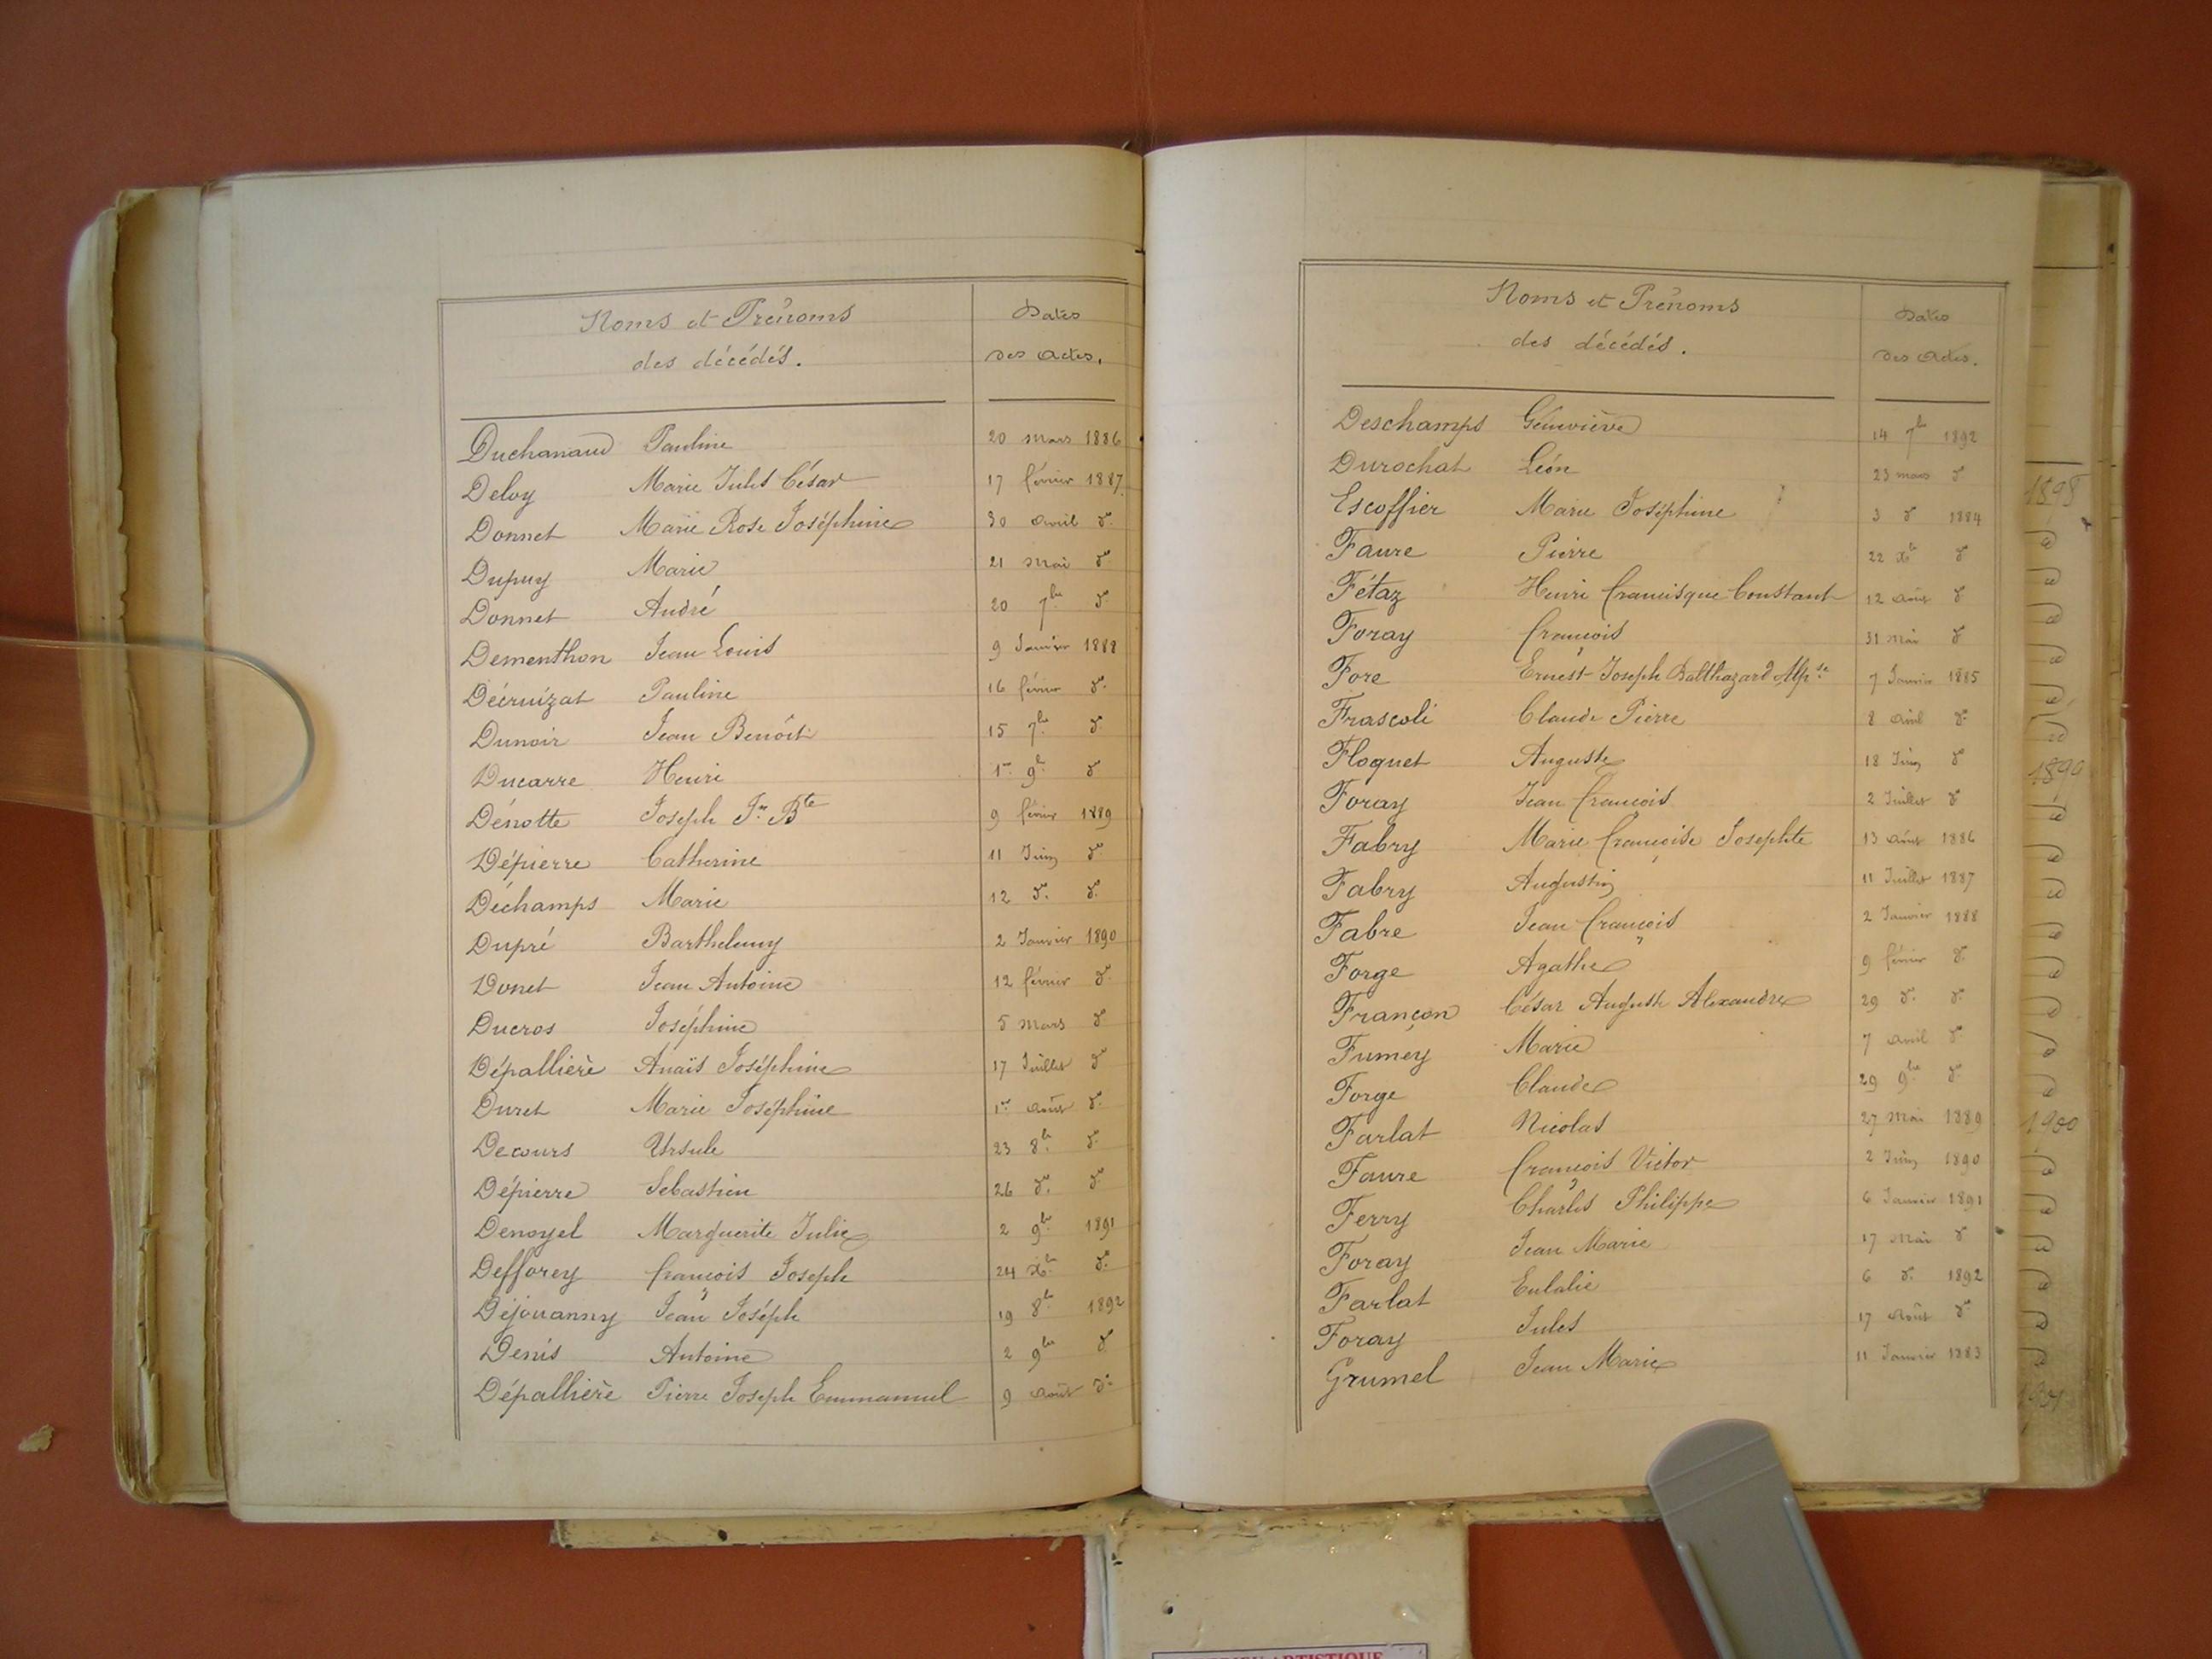 Noms et Prénoms
des décédés.
Dates
des actes.
Duchanaud Pauline 20 mars 1886
Deloy Marie Jules César 17 février 1887
Donnet Marie Rose Joséphine 30 avril do
Dupuy Marie 21 mai do
Donnet André 20 7bre do
Dementhon Jean Louis 9 Janvier 1888
Décruizat Pauline 16 février do
Dunoir Jean Benôit 15 7bre do
Ducarre Henri 1er 9b do
Dénotte Joseph Jn Bte 9 février 1889
Dépierre Catherine 11 Juin do
Dechamps Marie 12 do do
Dupré Barthelemy 2 Janvier 1890
Donet Jean Antoine 12 février do
Ducros Joséphine 5 mars do
Dépallière Anaïs Joséphine 17 Juillet do
Duret Marie Joséphine 1er août do
Decours Ursule 23 8b do
Dépierre Sebastien 26 do do
Denoyel Marguerite Julie 2 9bre 1891
Refforey françois Joseph 24 Xb do
Déjouanny Jean Joséph 19 8b 1892
Denis Antoine 2 9bre do
Dépallière Pierre Joseph Emmanuel 9 août do
Noms et Prénoms
des décédés.
Dates
des actes.
Deschamps Géneviève 14 7bre 1892
Durochat Léon 23 mars do
Escoffier Marie Joséphine 3 do 1884
Faure Pierre 22 Xb do
Fétaz Henri francisque Constant 12 août do
Foray françois 31 mai do
Fore Ernest Joseph Balthazard Alpse 7 Janvier 1885
Frascoli Claude Pierre 8 avril do
Floquet Auguste 18 Juin do
Foray Jean françois 2 Juillet do
Fabry Marie françoise Josephte 13 août 1886
Fabry Augustin 11 Juillet 1887
Fabre Jean françois 2 Janvier 1888
Forge Agathe 9 février do
Françon César Auguste Alexandre 29 do do
Fumey Marie 7 avril do
Forge Claude 29 9bre do
Farlat Nicolas 27 mai 1889
Faure françois Victor 2 Juin 1890
Ferry Charles Philippe 6 Janvier 1891
Foray Jean Marie 17 mai do
Farlat Eulalie 6 do 1892
Foray Jules 17 août do
Grumel Jean Marie 11 Janvier 1883
1898
1890
1900
ARTISTIQUE